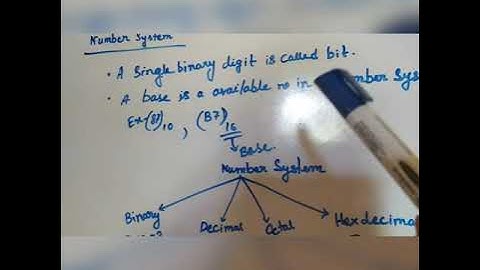 Number System
• A Single binary digit is called bit.
• A base is a available no in Number Sys
Ex-(87)10, (B7)16
Base.
Number System
Binary Decimal Octal Hexdecimal